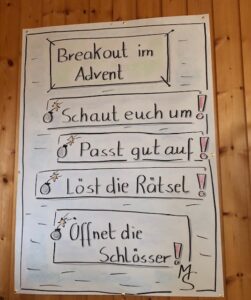 Breakout im
Advent
Schaut euch um!
Passt gut auf!
Löst die Rätsel!
Öffnet die
Schlösser!
MS